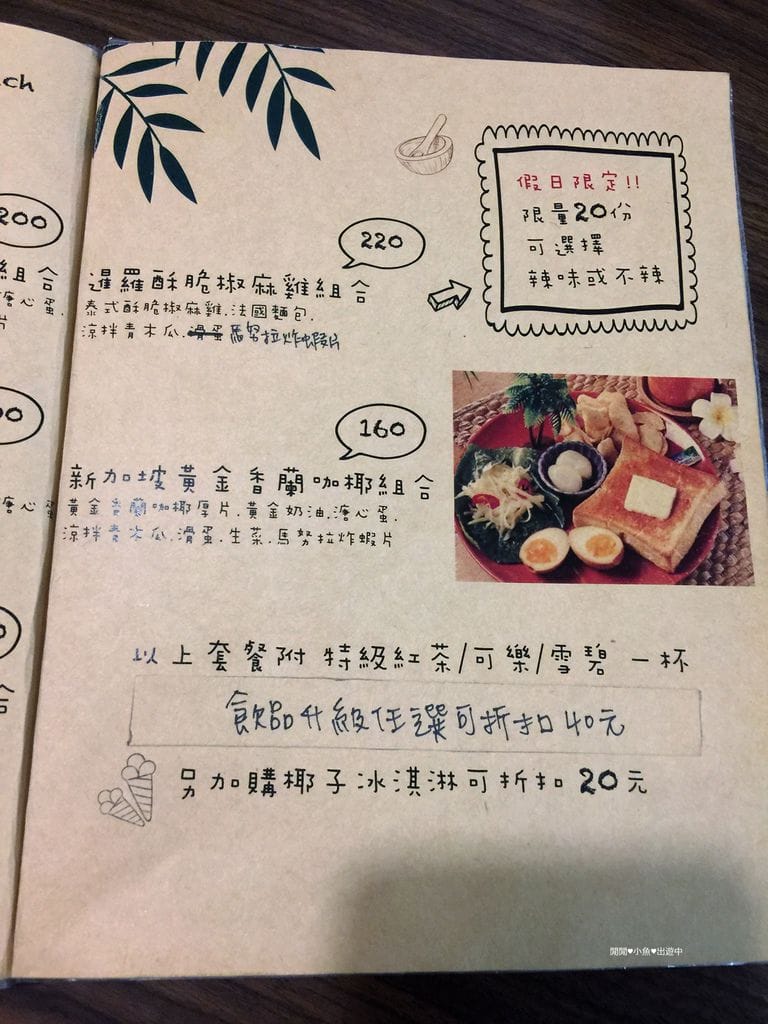 ch
200
組合
溏心蛋.
片
溏心蛋
假日限定!!
限量20份
可選擇
辣味或不辣
220
暹羅酥脆椒麻雞組合
泰式酥脆椒麻雞.法國麵包.
涼拌青木瓜.滑蛋 馬努拉炸蝦片
160
新加坡黃金香蘭咖椰組合
黃金香蘭咖椰厚片.黃金奶油.溏心蛋.
涼拌青木瓜.滑蛋.生菜.馬努拉炸蝦片
以上套餐附 特級紅茶/可樂/雪碧 一杯
飲品升級任選可折扣40元
另加購椰子冰淇淋可折扣 20元
閒閒♥小魚♥出遊中